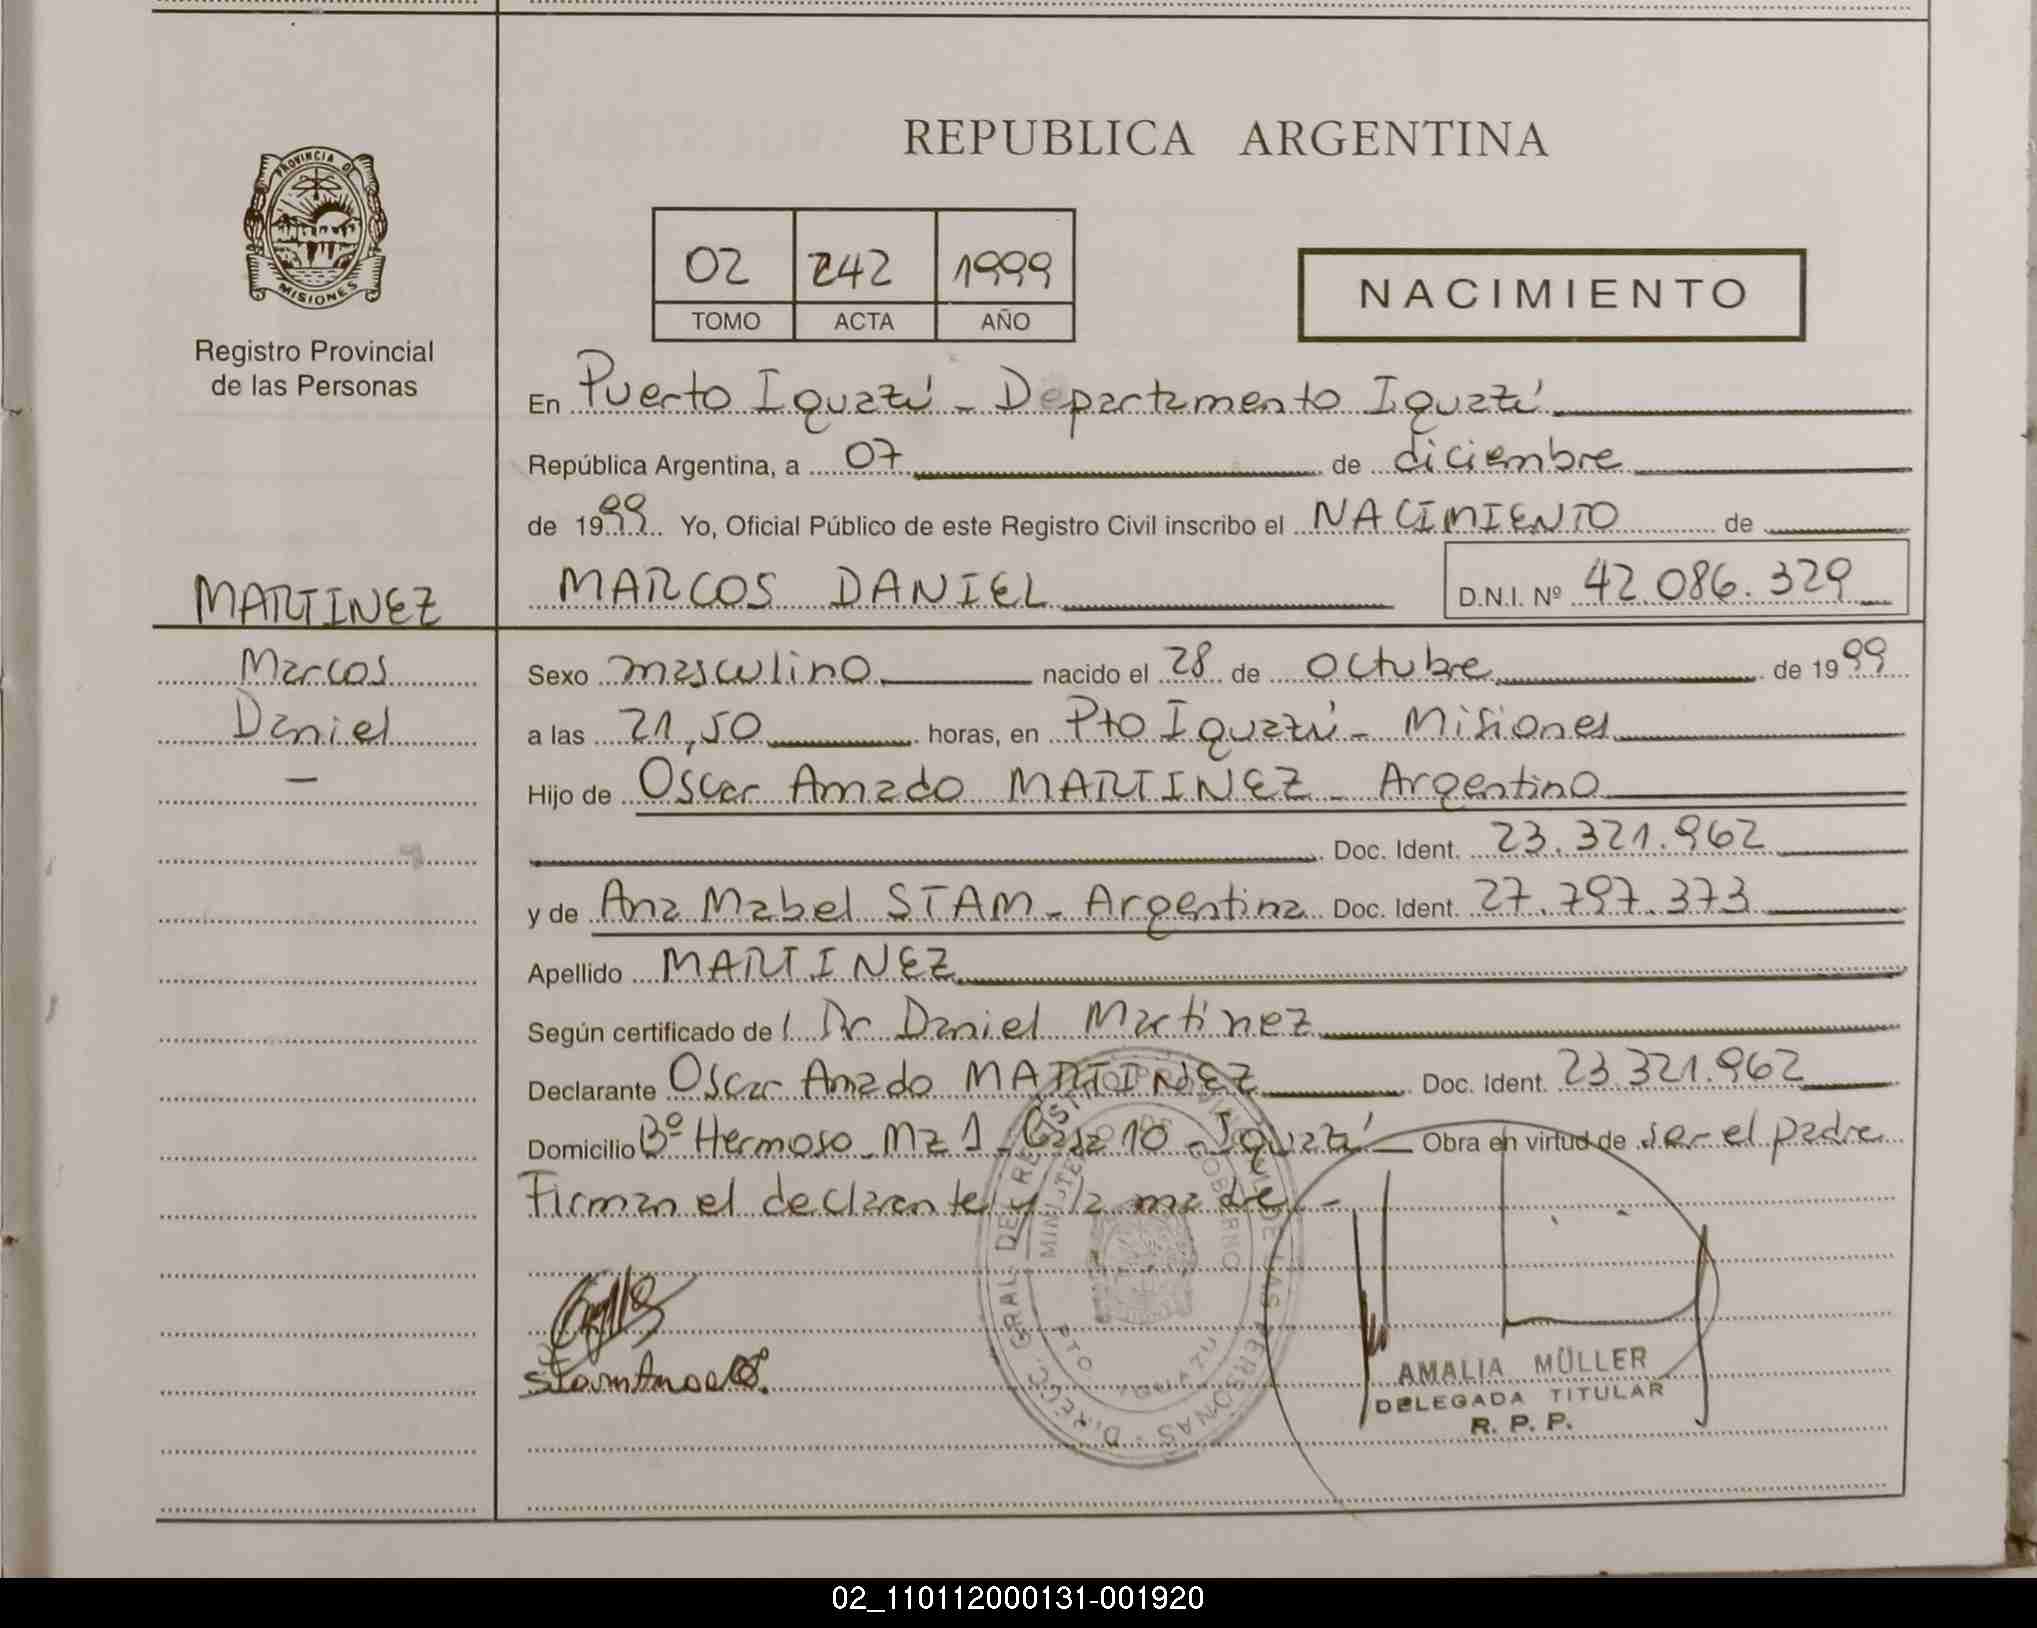 REPUBLICA ARGENTINA
PROVINCIA DE
MISIONES
Registro Provincial
de las Personas
02 242 1999
TOMO ACTA AÑO
NACIMIENTO
En Puerto Iguazú - Departamento Iguazú
República Argentina, a 07 de diciembre
de 1999 Yo, Oficial Público de este Registro Civil inscribo el NACIMIENTO de
MARTINEZ
Marcos
Daniel
—
MARCOS DANIEL D.N.I. Nº 42.086.329
Sexo masculino nacido el 28 de octubre de 1999
a las 21,50 horas, en Pto Iguazú - Misiones
Hijo de Oscar Amado MARTINEZ - Argentino
Doc. Ident. 23.321.962
y de Ana Mabel STAM - Argentina Doc. Ident. 27.797.373
Apellido MARTINEZ
Según certificado de l Dr Daniel Martinez
Declarante Oscar Amado MARTINEZ Doc. Ident. 23.321.962
Domicilio Bº Hermoso - Mz 1 - Casa 10 - Iguazú Obra en virtud de ser el padre
Firman el declarante y la madre -
DIREC. GRAL. DE REGISTRO PROVINCIAL DE LAS PERSONAS
MINISTERIO DE GOBIERNO
PTO IGUAZU
AMALIA MÜLLER
DELEGADA TITULAR
R. P. P.
02_110112000131-001920